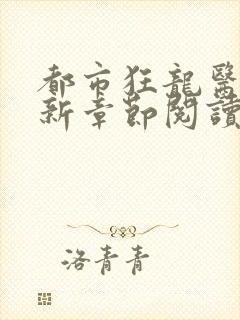 都市狂龍醫
新章節閱讀
洛青青